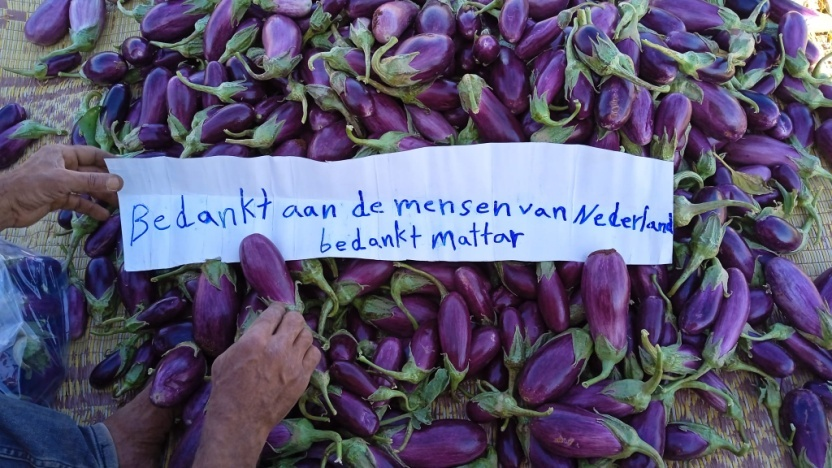 Bedankt aan de mensen van Nederland
bedankt mattar